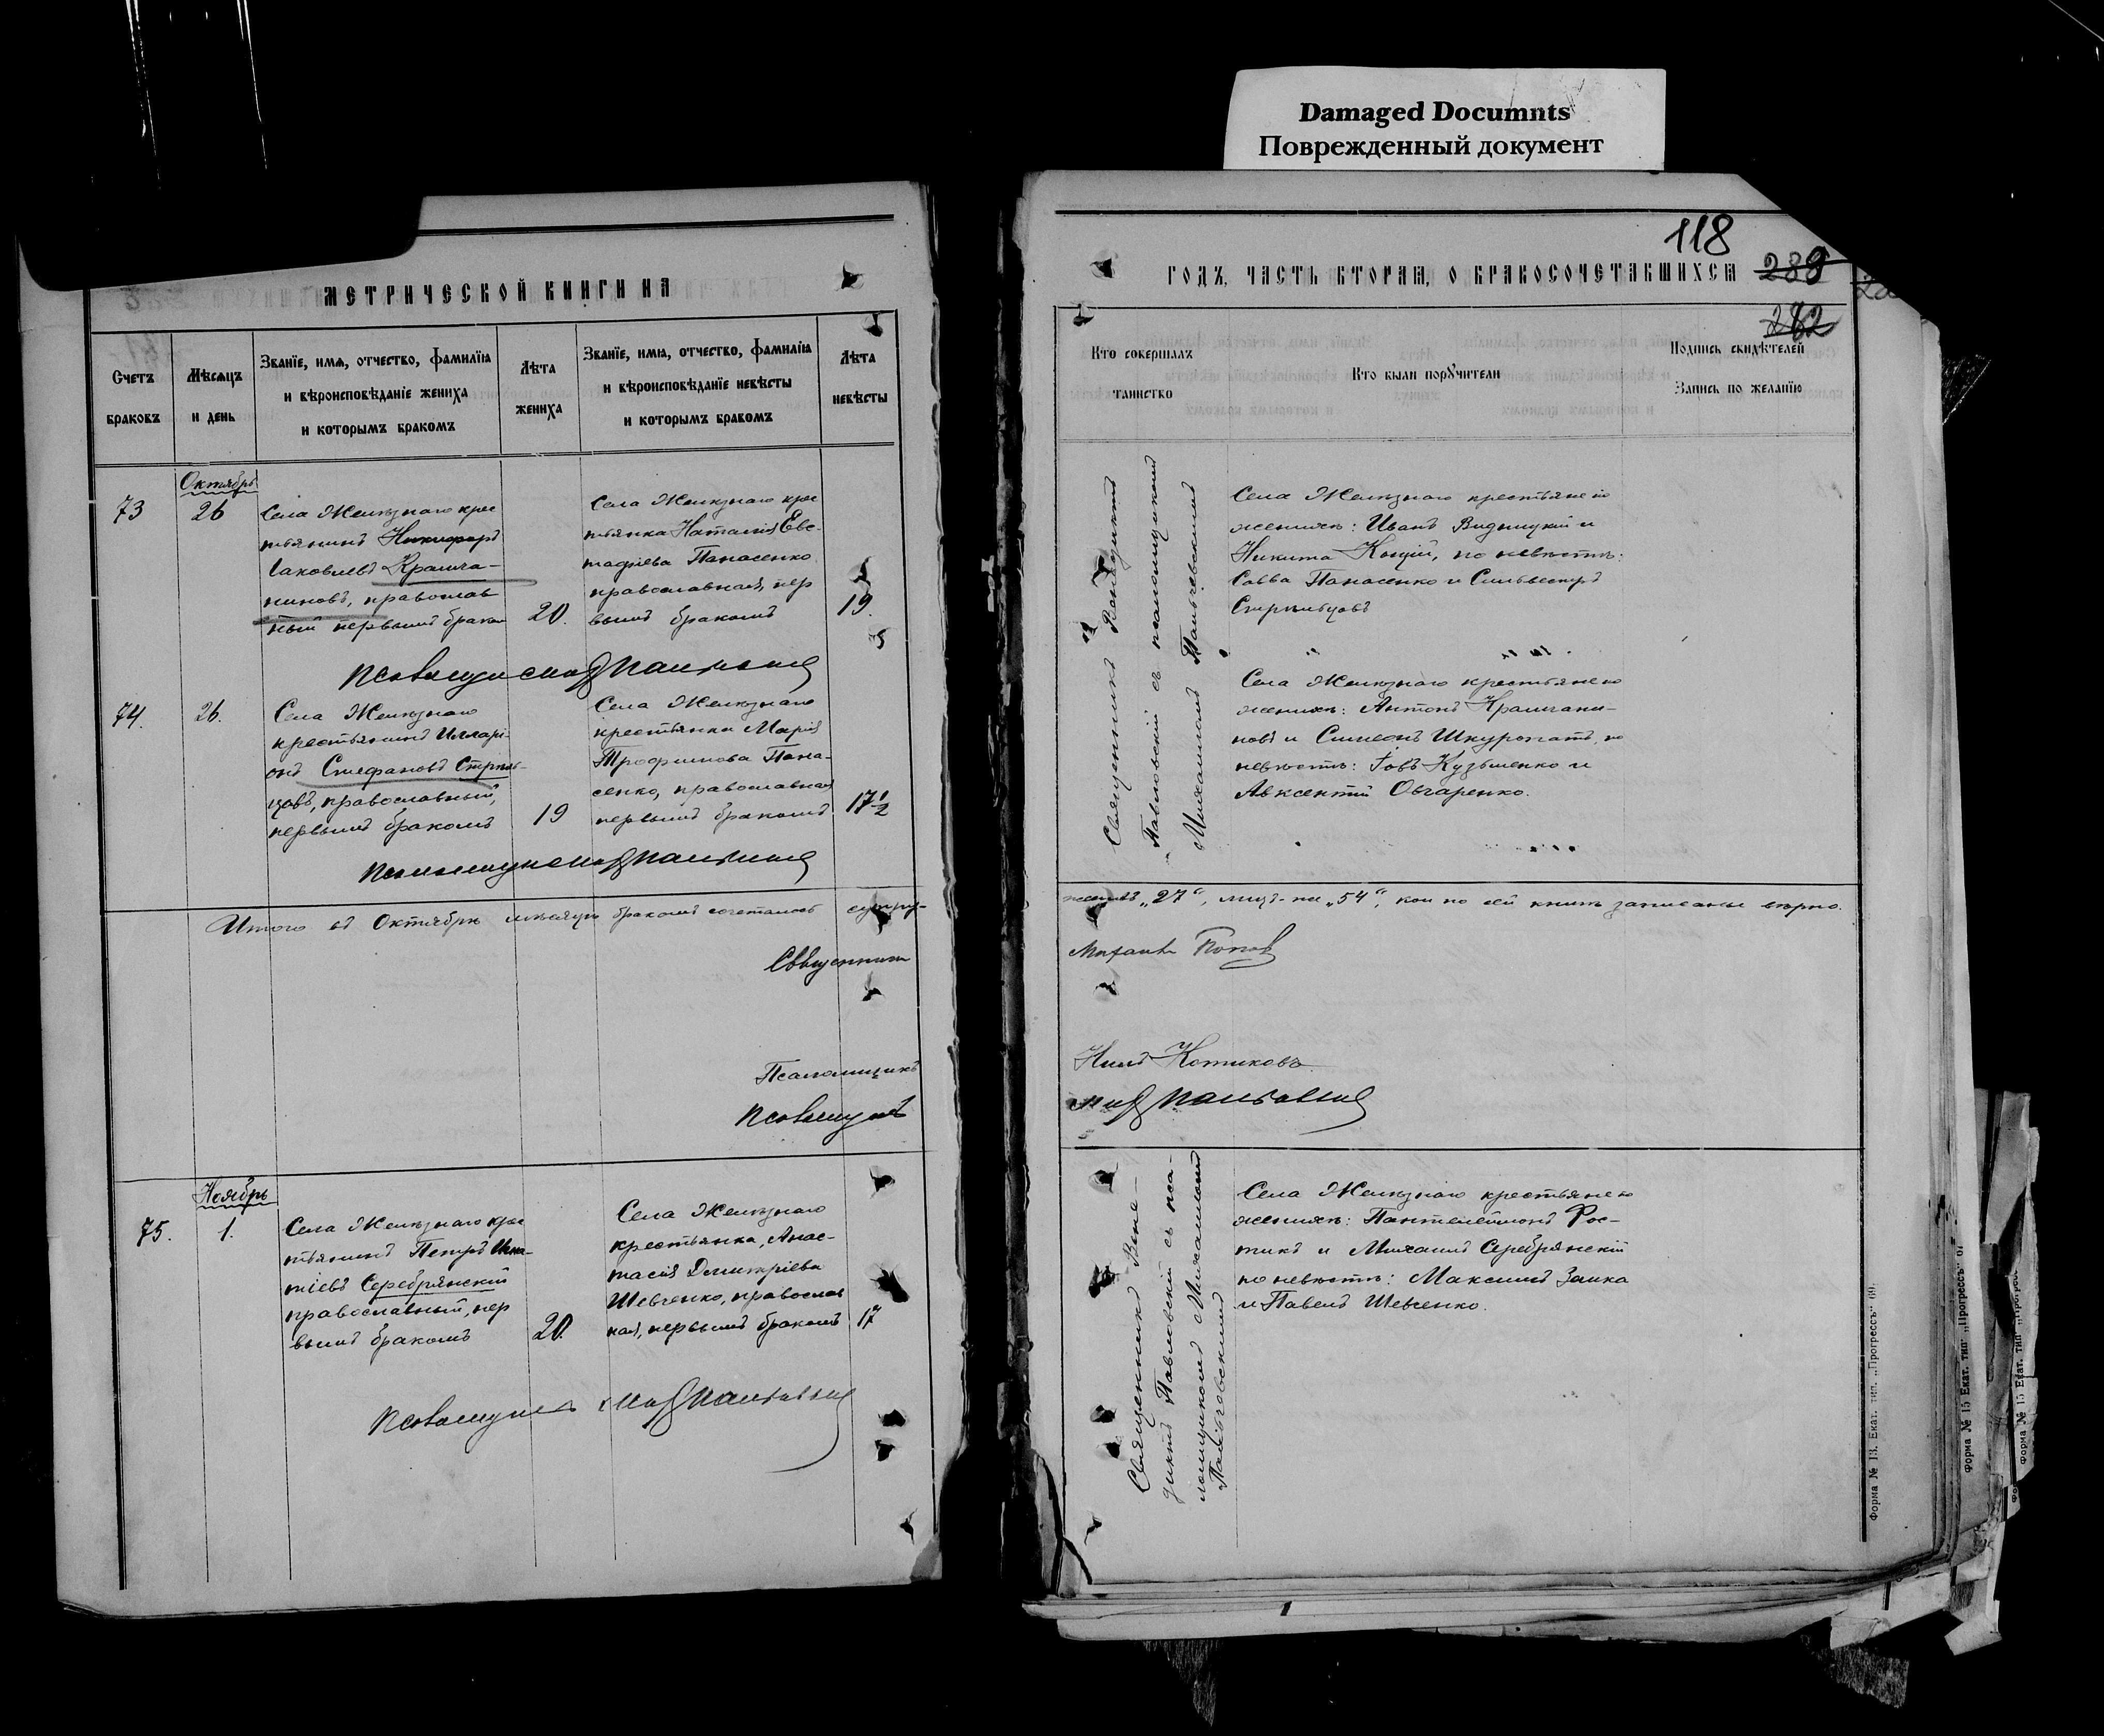 Damaged Documnts
Поврежденный документ
МЕТРИЧЕСКОЙ КНИГИ НА
Счетъ
браковъ
Мѣсяцъ
и день
Званіе, имя, отчество, фамилія
и вѣроисповѣданіе жениха
и которымъ бракомъ
Лѣта
жениха
Званіе, имя, отчество, фамилія
и вѣроисповѣданіе невѣсты
и которымъ бракомъ
Лѣта
невѣсты
Октябрь
73
26
Села Желѣзнаго крес
тьянинъ Никифоръ
Іаковлевъ Крамча-
ниновъ, православ
ный первымъ браком
20.
Села Желѣзнаго крес
тьянка Наталія Евс-
тафіева Панасенко
православная, пер
вымъ бракомъ
19.
74.
26.
Села Желѣзнаго
крестьянинъ Иллари-
онъ Стефановъ Стрѣль-
цовъ, православный,
первымъ бракомъ
19
Села Желѣзнаго
крестьянка Марія
Трофимова Пана-
сенко, православная
первымъ бракомъ
17½
Итого въ Октябрѣ мѣсяцѣ бракомъ сочеталось супру-
Священникъ
Псаломщикъ
Псаломщикъ
Ноябрь
75.
1.
Села Желѣзнаго крес
тьянинъ Петръ Игна-
тіевъ Серебрянскій
православный, пер
вымъ бракомъ
20.
Села Желѣзнаго
крестьянка, Анас-
тасія Димитріева
Шевченко, православ
ная, первымъ бракомъ
17
118
289
282
ГОДЪ, ЧАСТЬ ВТОРАЯ, О БРАКОСОЧЕТАВШИХСЯ
Кто совершалъ
таинство
Кто были поручители
Подпись свидѣтелей
Запись по желанію
Священникъ Венедиктъ
Павловскій съ псаломщикомъ
Михаиломъ
Села Желѣзнаго крестьяне по
женихѣ: Иванъ Видмицкій и
Никита Коцій, по невѣстѣ:
Савва Панасенко и Сильвестръ
Стрѣльцовъ
Села Желѣзнаго крестьяне по
женихѣ: Антонъ Крамчани-
новъ и Симеонъ Шкуропатъ, по
невѣстѣ: Іовъ Кузьменко и
Авксентій Овчаренко.
жествъ „27“, лицъ-же „54“, кои по сей книгѣ записаны вѣрно.
Михаилъ Поповъ
Нилъ Котиковъ
Священникъ Вене-
диктъ Павловскій съ пса-
ломщикомъ Михаиломъ
Села Желѣзнаго крестьяне по
женихѣ: Пантелеймонъ Рос-
тикъ и Михаилъ Серебрянскій
по невѣстѣ: Максимъ Заика
и Павелъ Шевченко.
Форма № 13. Екат. тип. „Прогрессъ“
Форма № 15 Екат. тип „Прогрессъ“
Форма № 15 Екат. тип